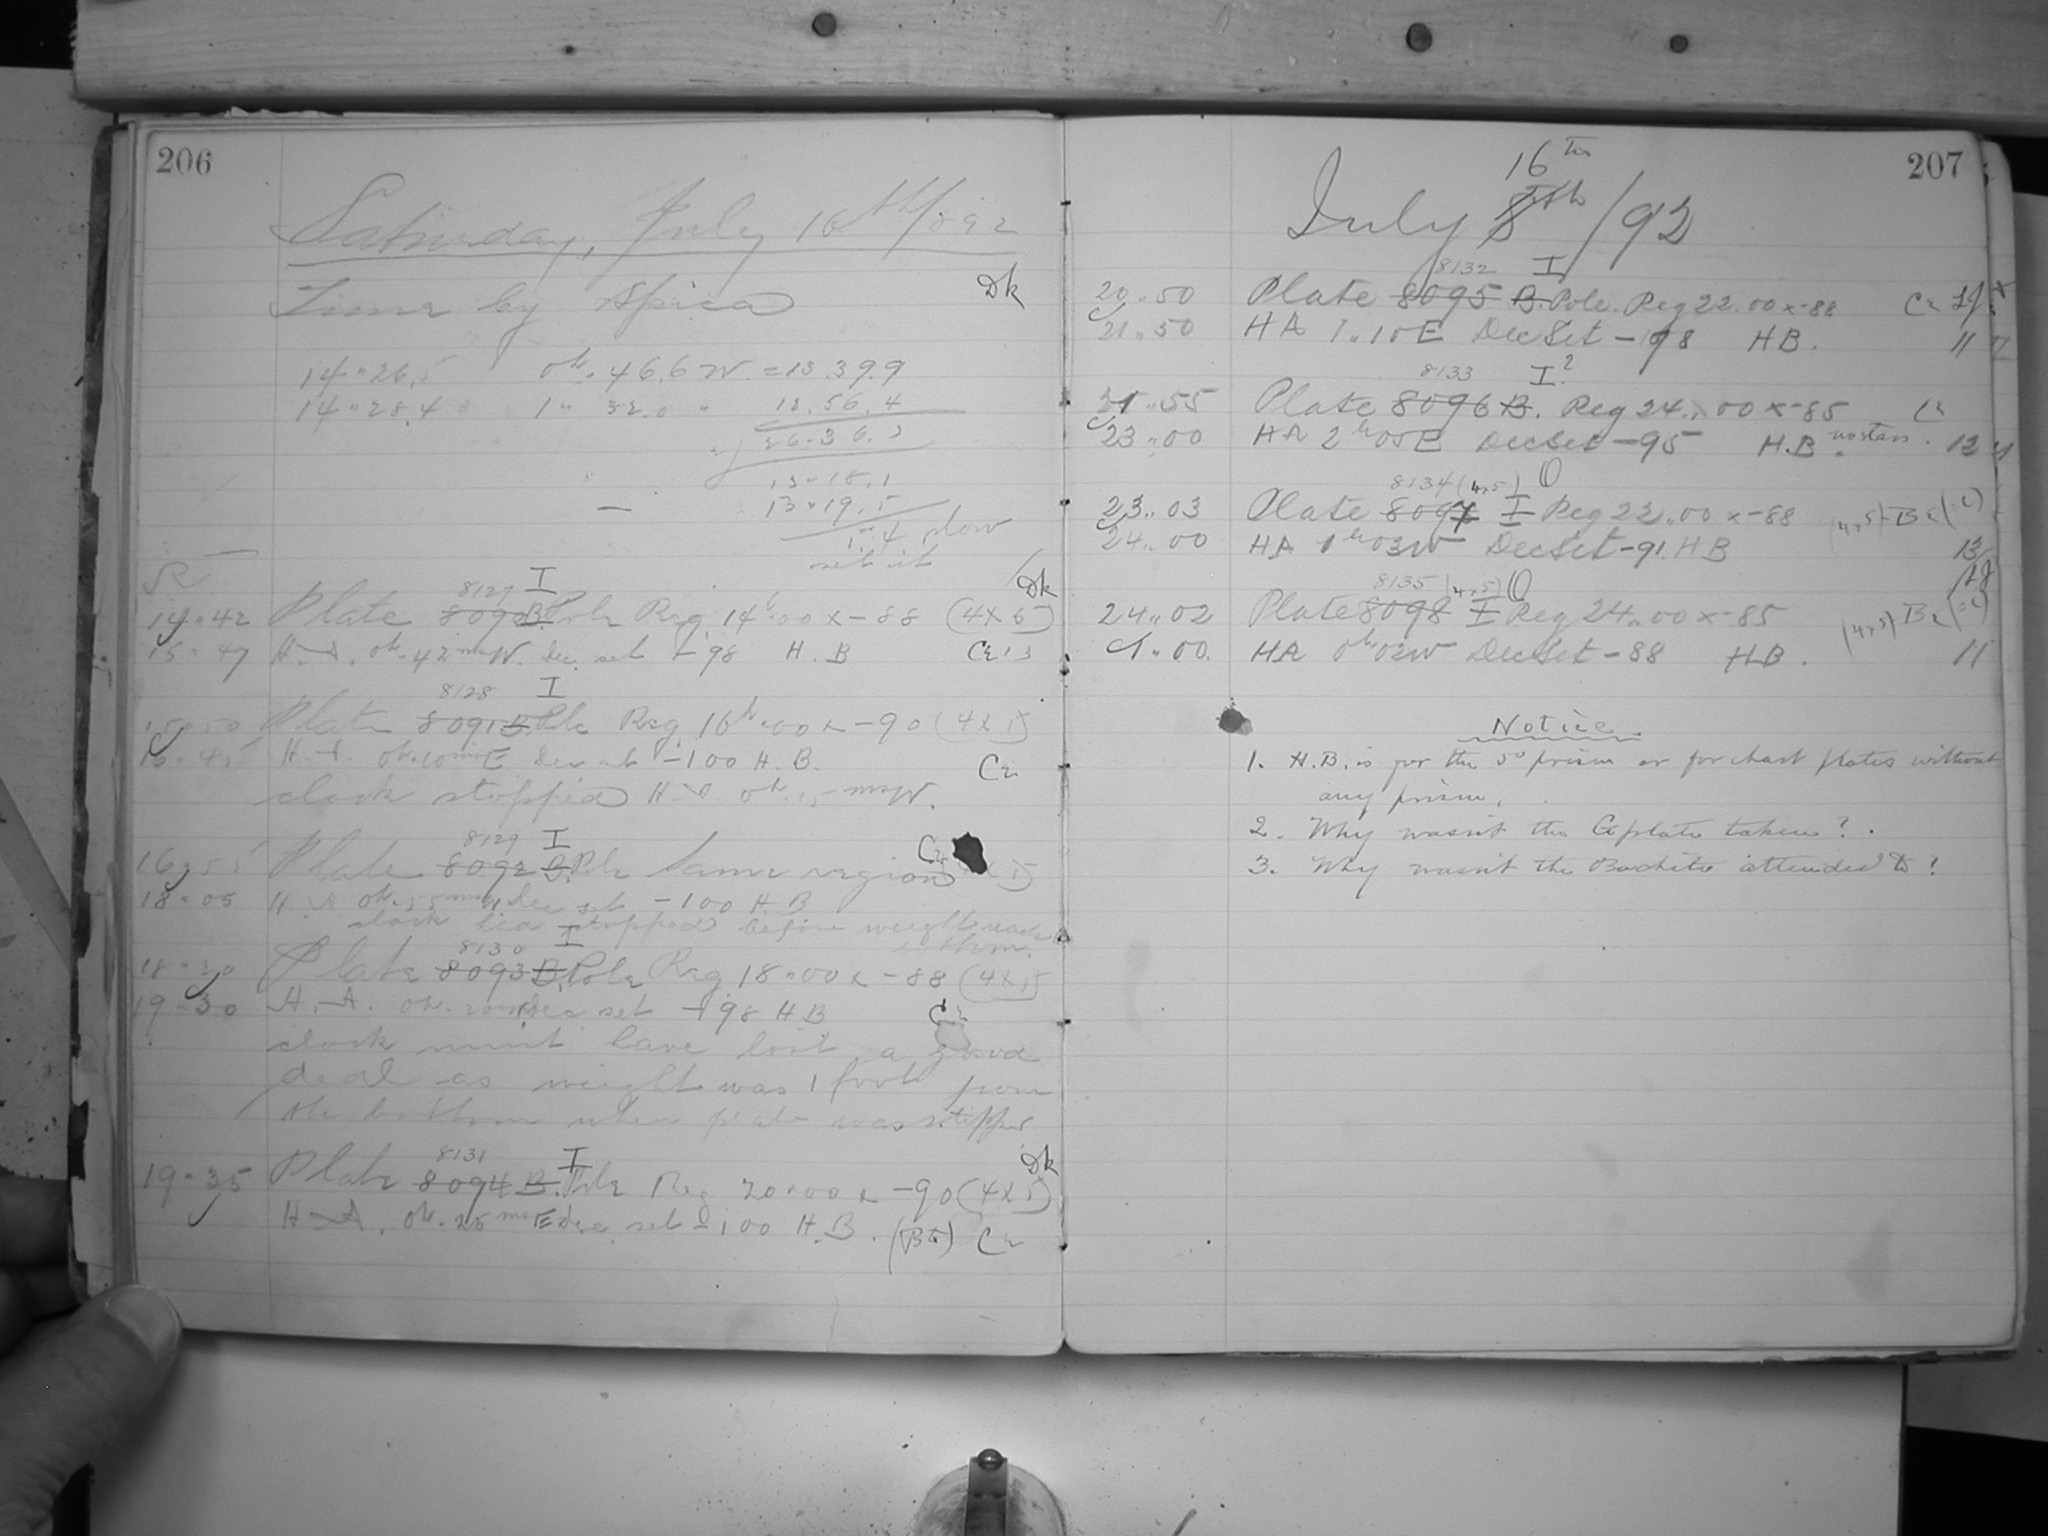 206
Saturday, July 16th/1892
Time by Spica Dk
14 " 26.5 0h. 46.6 W. = 13 39.9
14 " 28.4 " 1 " 32.0 " 12.56.4
26.36.3
13 " 18.1
13 " 19.5
1m.4 slow
set it
8127 I Dk
14 " 42 Plate 8090 B. Pole Reg 14h.00 x -88 (4x5)
15 " 47 H.A. 0h.42 ms W. Dec. set -98 H.B Cr 13
8128 I
15 " 50 Plate 8091 B. Pole Reg. 16h.00 x -90 (4x5)
16 " 45 H.A. 0h.10 ms E Dec set -100 H.B. Cr
clock stopped H.A. 0h.15 ms W.
8129 I Cr
16 " 55 Plate 8092 B. Pole Same region
18 " 05 H.A. 0h.55 ms Dec set -100 H.B
clock had stopped before weight reached
bottom.
8130 I
18 " 20 Plate 8093 B. Pole Reg. 18.00 x -88 (4x5
19 " 30 H.A. 0h. Dec set -98 H B Cr
clock must have lost a good
deal as weight was 1 foot from
the bottom when plate was stopped
8131 I Dk
19 " 35 Plate 8094 B. Pole Reg 20.00 x -90 (4x5)
H.A. 0h.25 ms E dec set -100 H.B. Cr
207
16th
July 8th /92
8132 I
20 " 50 Plate 8095 B. Pole. Reg 22.00 x -88 Cr
21 " 50 HA 1 " 10 E Dec Set -98 HB. 11
8133 I ?
21 " 55 Plate 8096 B. Reg 24 " 00 x -85 Cr
23 " 00 HA 2h 05 E Dec Set -95 H.B. no stars. 12
8134 (4x5) O
23 " 03 Plate 8097 I Reg 22 " 00 x -88
24 " 00 HA 1h 03 W Dec Set -91. HB 13
8135 (4x5) O
24 " 02 Plate 8098 I Reg 24 " 00 x -85
1 " 00. HA 0h 02 W Dec Set -88 HB. 11
Notice.
1. H.B. is for the 5° prism or for chart plates without
any prism.
2. Why wasn't the C plate taken?
3. Why wasn't the Bache to attended to?